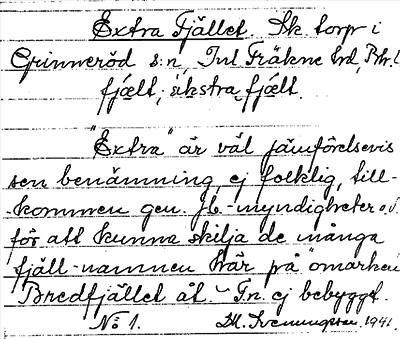 Extra Fjället. Sk. torp i
Grinneröd s:n, Inl Fräkne hd, Bhl.
fjælt, ikstra fjælt.
"Extra" är väl jämförelsevis
sen benämning, ej folklig, till-
-kommen gen. Jb.-myndigheter o.d.
för att kunna skilja de många
fjäll-namnen här på "omarken
Bredfjället åt. - Tn. ej bebyggt.
No 1. 1941.